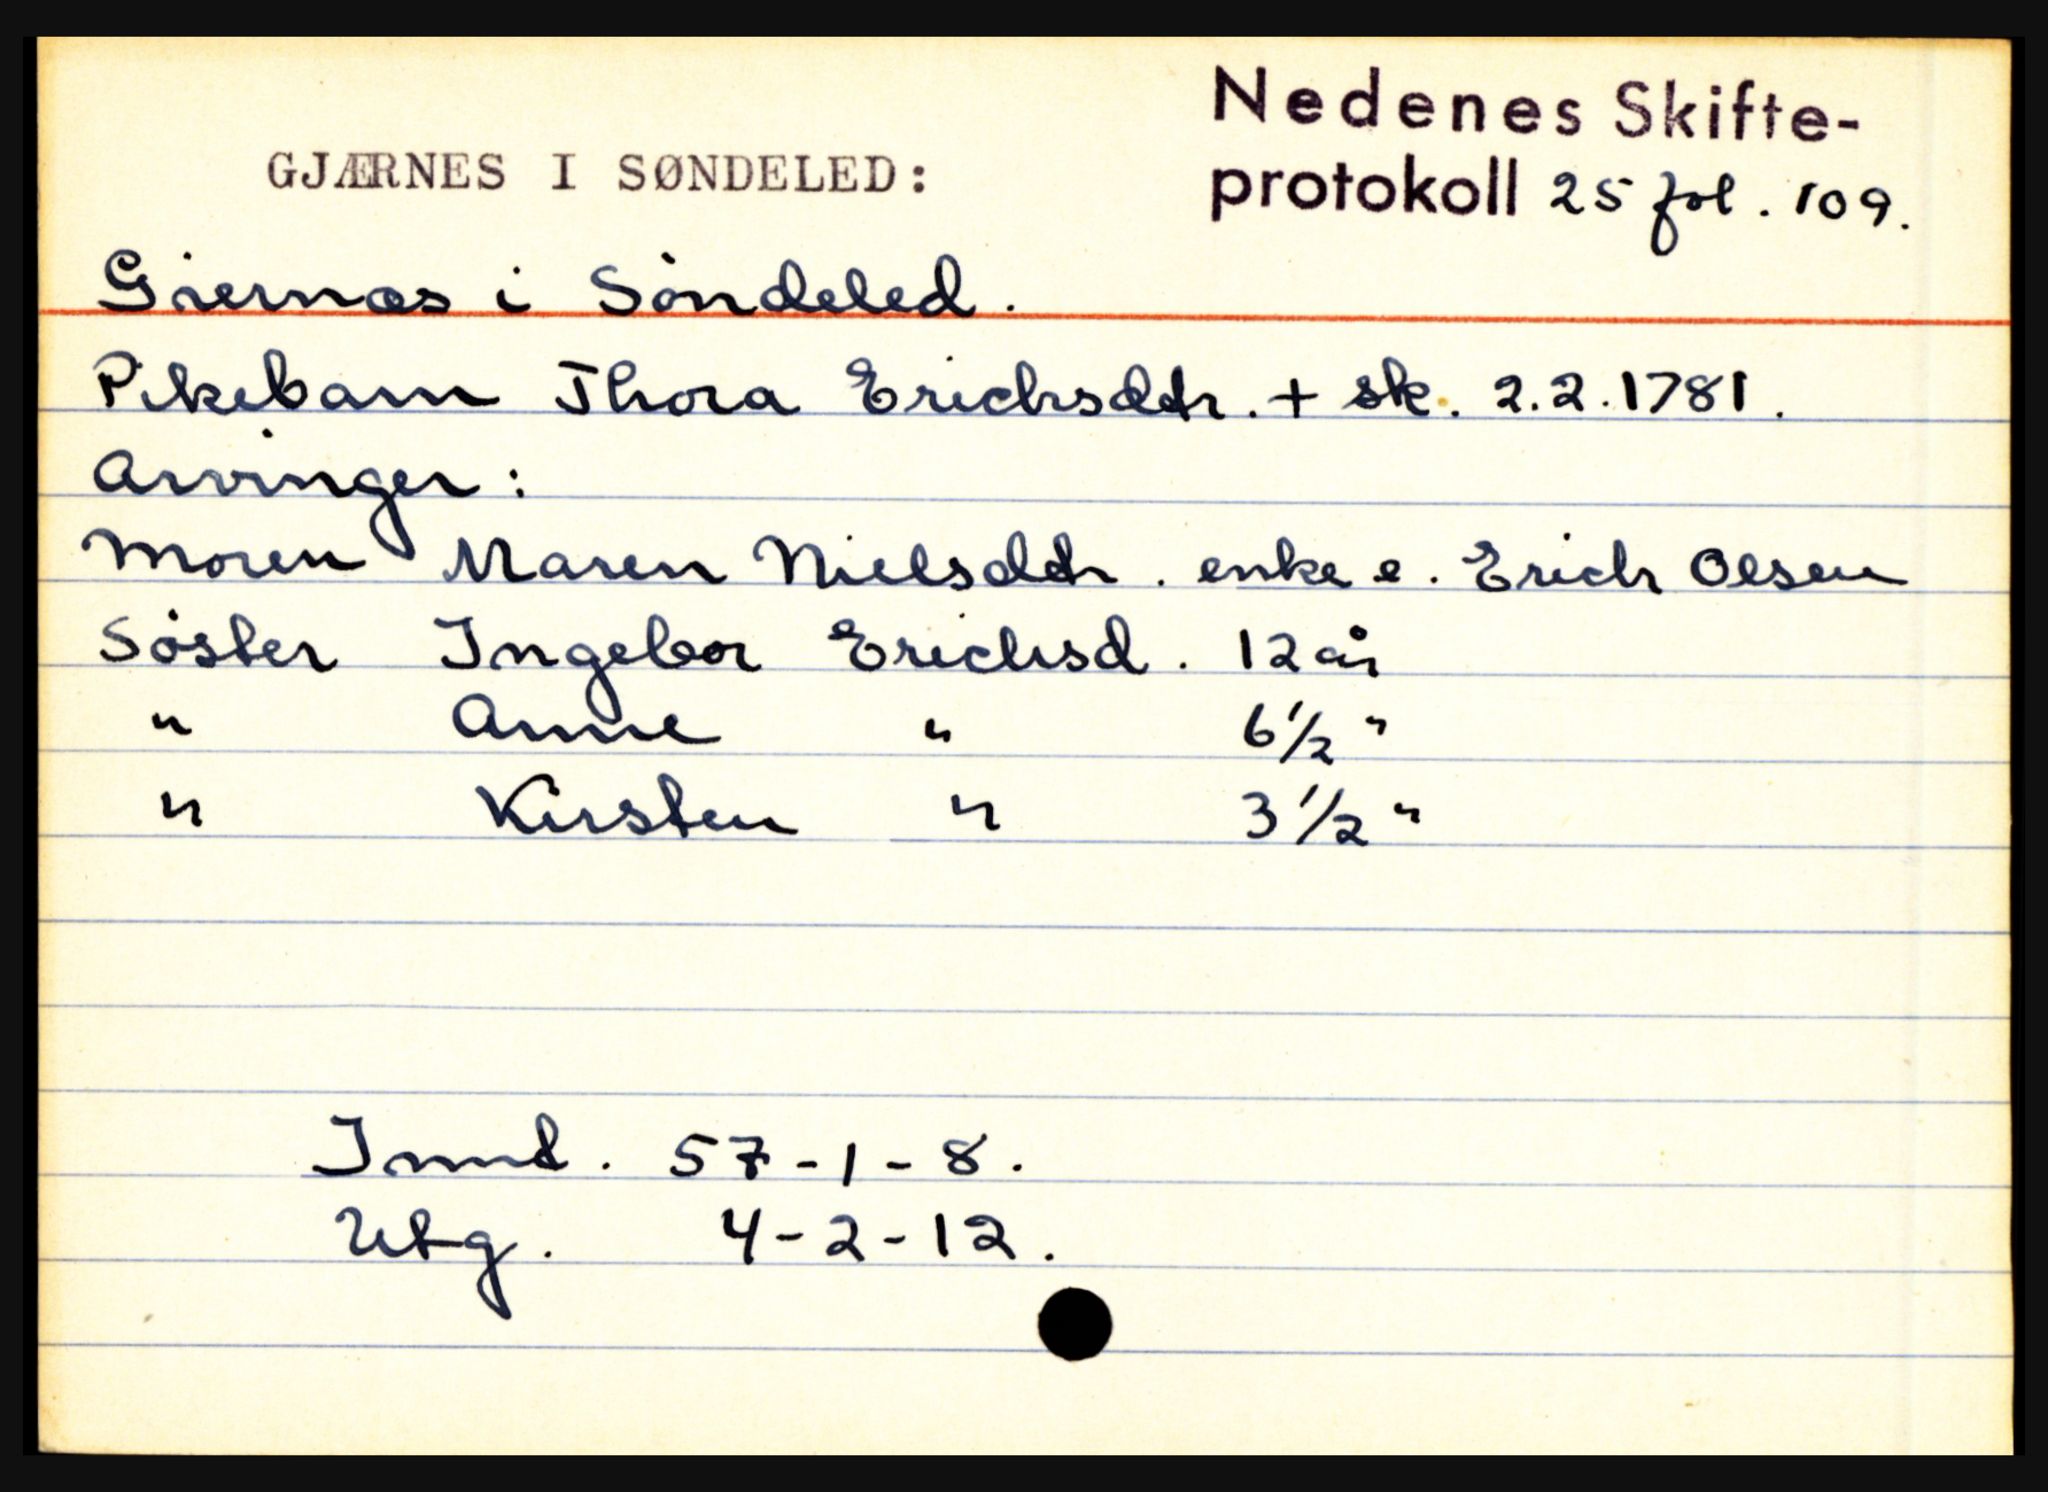 Nedenes Skifte-
GJÆRNES I SØNDELED:
protokoll 25 fol. 109.
Giernæs i Söndeled.
Pikebarn Thora Erichsdtr. + sk. 2.2.1781.
Arvinger:
Moren Maren Nielsdtr. enke e. Erich Olsen
Söster Ingebor Erichsd. 12 år
" Anne " 6 1/2 "
" Kirsten " 3 1/2 "
Innt. 57-1-8.
Utg. 4-2-12.